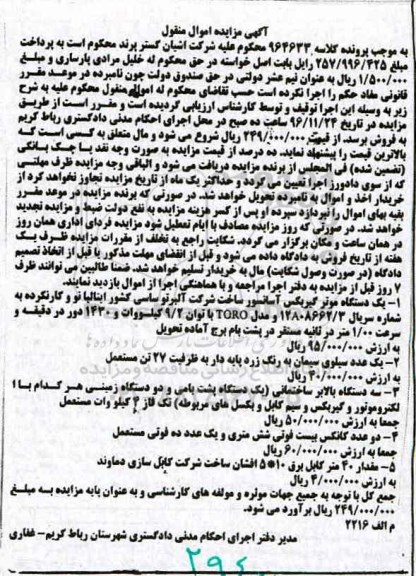 آگهی مزایده اموال منقول
به موجب پرونده کلاسه ۹۶۴۶۳۳ محکوم علیه شرکت اشیان گستر پرند محکوم است به پرداخت
مبلغ ۲۵۷/۹۹۶/۴۲۵ رایل بابت اصل خواسته در حق محکوم له خلیل مرادی پارساری و مبلغ
۱/۵۰۰/۰۰۰ ریال به عنوان نیم عشر دولتی در حق صندوق دولت چون نامبرده در موعد مقرر
قانونی مفاد حکم را اجرا نکرده است حسب تقاضای محکوم له اموال منقول محکوم علیه به شرح
زیر به وسیله این اجرا توقیف و توسط کارشناس ارزیابی گردیده است و مقرر است از طریق
مزایده در تاریخ ۹۶/۱۱/۲۴ ساعت ده صبح در محل اجرای احکام مدنی دادگستری رباط کریم
به فروش برسد. از قیمت ۲۴۹/۰۰۰/۰۰۰ ریال شروع می شود و مال متعلق به کسی است که
بالاترین قیمت را پیشنهاد نماید. ده درصد از قیمت مزایده به صورت وجه نقد یا چک بانکی
(تضمین شده) فی المجلس از برنده مزایده دریافت می شود و الباقی وجه مزایده ظرف مهلتی
که از سوی دادورز اجرا تعیین می گردد و حداکثر یک ماه از تاریخ مزایده تجاوز نخواهد کرد از
خریدار اخذ و اموال به نامبرده تحویل خواهد شد. در صورتی که برنده مزایده در موعد مقرر
بقیه بهای اموال را نپردازد سپرده او پس از کسر هزینه مزایده به نفع دولت ضبط و مزایده تجدید
خواهد شد. در صورتی که روز مزایده مصادف با ایام تعطیل شود مزایده فردای اداری همان روز
در همان ساعت و مکان برگزار می گردد. شکایت راجع به تخلف از مقررات مزایده ظرف یک
هفته از تاریخ فروش به دادگاه داده می شود و قبل از انقضای مهلت مذکور یا قبل از اتخاذ تصمیم
دادگاه (در صورت وصول شکایت) مال به خریدار تسلیم خواهد شد. ضمنا طالبین می توانند ظرف
۷ روز قبل از مزایده به دفتر اجرا مراجعه و با هماهنگی اجرا از اموال بازدید نمایند.
۱- یک دستگاه موتر گیربکس آسانسور ساخت شرکت آلبرتو ساسی کشور ایتالیا نو و کارنکرده به
شماره سریال ۱۲۸۰۸۶۶۲/۳ و مدل TORO با توان ۹/۲ کیلووات و ۱۴۳۰ دور در دقیقه و
سرعت ۱/۰۰ متر در ثانیه مستقر در پشت بام برج آماده تحویل
به ارزش ۹۵/۰۰۰/۰۰۰ ریال
۲- یک عدد سیلوی سیمان به رنگ زرد پایه دار به ظرفیت ۲۷ تن مستعمل
به ارزش ۴۰/۰۰۰/۰۰۰ ریال
۳- سه دستگاه بالابر ساختمانی (یک دستگاه پشت بامی و دو دستگاه زمینی هر کدام با ۱
لکتروموتور و گیربکس و سیم کابل و بکسل های مربوطه) تک فاز ۴ کیلو وات مستعمل
جمعا به ارزش ۵۰/۰۰۰/۰۰۰ ریال
۴- دو عدد کانکس بیست فوتی شش متری و یک عدد ده فوتی مستعمل
جمعا به ارزش ۶۰/۰۰۰/۰۰۰ ریال
۵- مقدار ۴۰ متر کابل برق ۱۰*۵ افشان ساخت شرکت کابل سازی دماوند
به ارزش ۴/۰۰۰/۰۰۰ ریال
جمع کل با توجه به جمیع جهات موثره و مولفه های کارشناسی و به عنوان پایه مزایده به مبلغ
۲۴۹/۰۰۰/۰۰۰ ریال برآورد می شود.
م الف ۲۲۱۶
مدیر دفتر اجرای احکام مدنی دادگستری شهرستان رباط کریم- غفاری